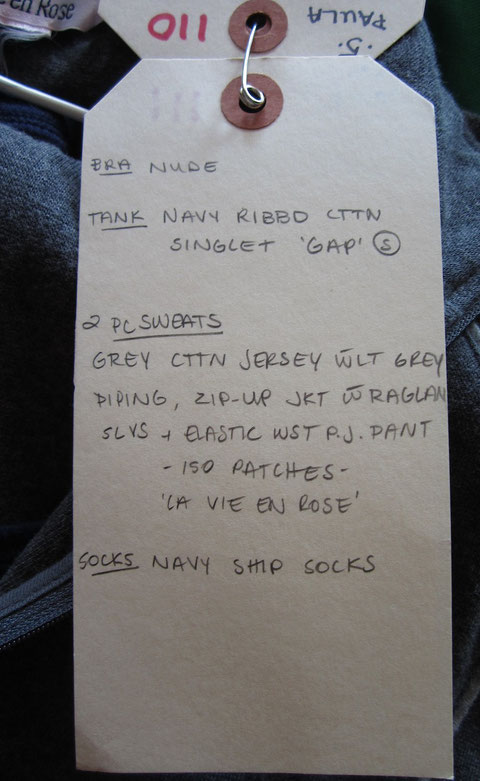 en Rose
110
5. PAULA
BRA NUDE
TANK NAVY RIBBD CTTN
SINGLET 'GAP' S
2 PC SWEATS
GREY CTTN JERSEY W̄ LT GREY
PIPING, ZIP-UP JKT W̄ RAGLAN
SLVS + ELASTIC WST P.J. PANT
- 150 PATCHES -
'LA VIE EN ROSE'
SOCKS NAVY SHIP SOCKS